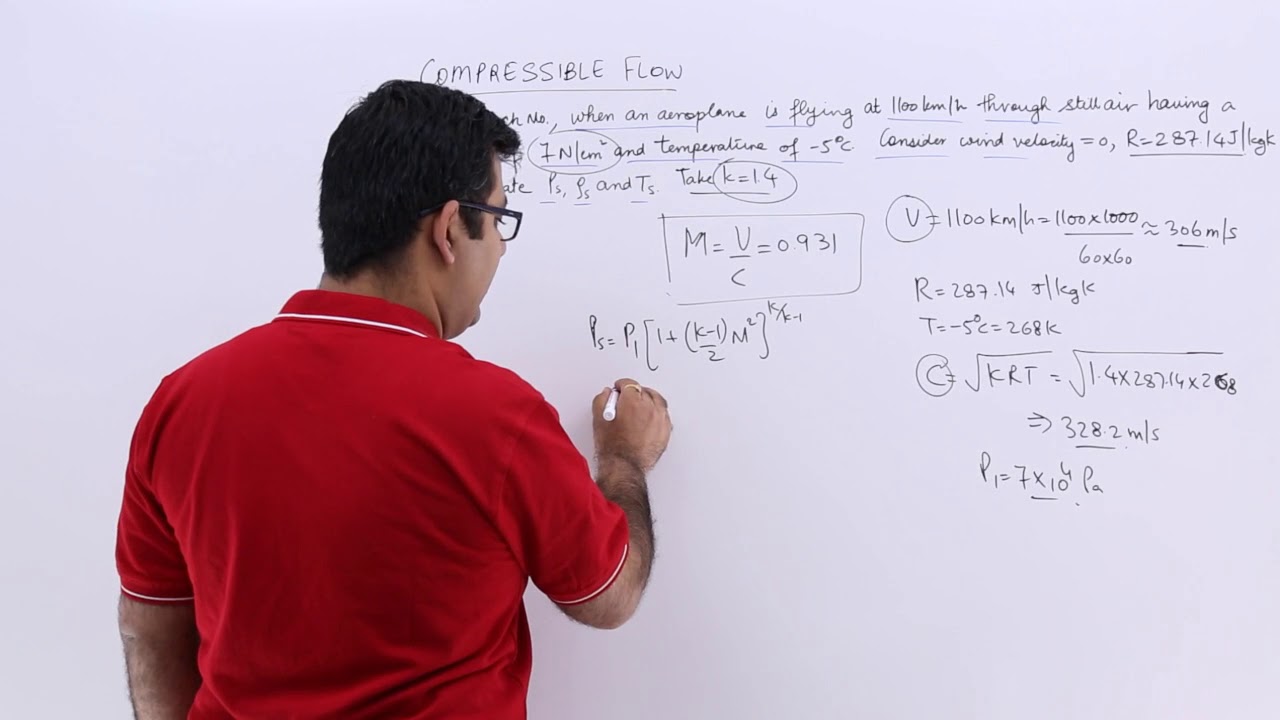 COMPRESSIBLE FLOW
No., when an aeroplane is flying at 1100km/h through still air having a
7N/cm² and temperature of -5°C. Consider wind velocity = 0, R=287.14J/kgK
ate Ps, ρs and Ts. Take k=1.4
V = 1100km/h = 1100x1000/60x60 ≈ 306m/s
M = V/C = 0.931
R = 287.14 J/kgK
Ps = P1[1+(k-1)/2 M²]^k/k-1
T = -5°C = 268K
C = √KRT = √1.4x287.14x268
⇒ 328.2m/s
P1 = 7x10⁴ Pa